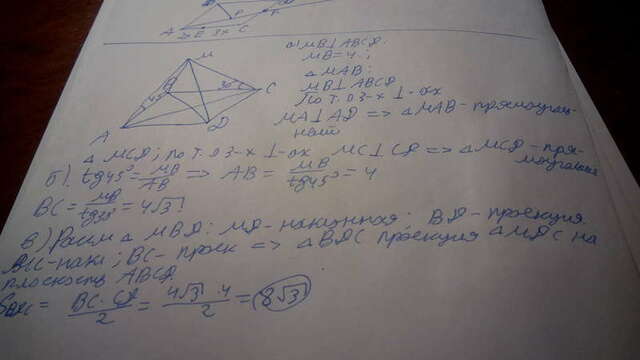 A
2x
B
3x
C
M
45°
30°
C
A
D
а) MB⊥ABCD.
MB=4;
△MAB:
MB⊥ABCD
По т. о 3-х ⊥-ах
MA⊥AD => △MAB - прямоуголь-
ный
△MCD; по т. о 3-х ⊥-ах MC⊥CD => △MCD - пря-
моугольный
б). tg45° = MB/AB => AB = MB/tg45° = 4
BC = MB/tg30° = 4√3
в) Рассм △MBD: MD - наклонная; BD - проекция.
MC - накл; BC - проек => △BDC проекция △MDC на
плоскость ABCD.
S BDC = BC·CD/2 = 4√3·4/2 = 8√3